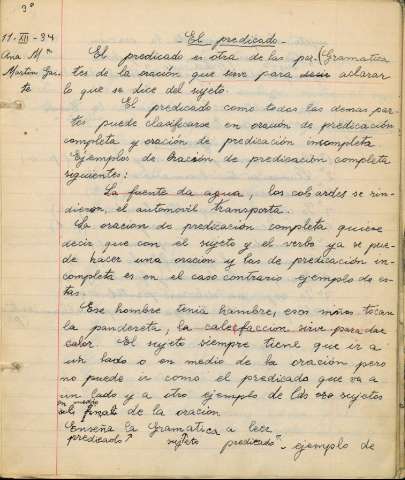 3º
11-XII-34
Ana Mª
Martín Gai-
te
El predicado.-
El predicado es otra de las par-(Gramatica
tes de la oración que sirve para decir aclarar
lo que se dice del sujeto.
El predicado como todas las demas par-
tes puede clasificarse en oración de predicación
completa y oración de predicación incompleta
Ejemplos de Oración de predicación completa
siguientes:
La fuente da agua, los cobardes se rin-
dieron, el automovil transporta.
La oracion de predicación completa quiere
decir que con el sujeto y el verbo ya se pue-
de hacer una oración y las de predicación in-
completa es en el caso contrario ejemplo de es-
tas.
Ese hombre tenia hambre, esos niños tocan
la pandereta, la calefaccion sirve para dar
calor. El sujeto siempre tiene que ir a
un lado o en medio de la oración pero
no puede ir como el predicado que va a
un lado y a otro ejemplo de los sujetos
en medio
al final de la oración
Enseña la Gramatica a leer
predicado sujeto predicado - ejemplo de